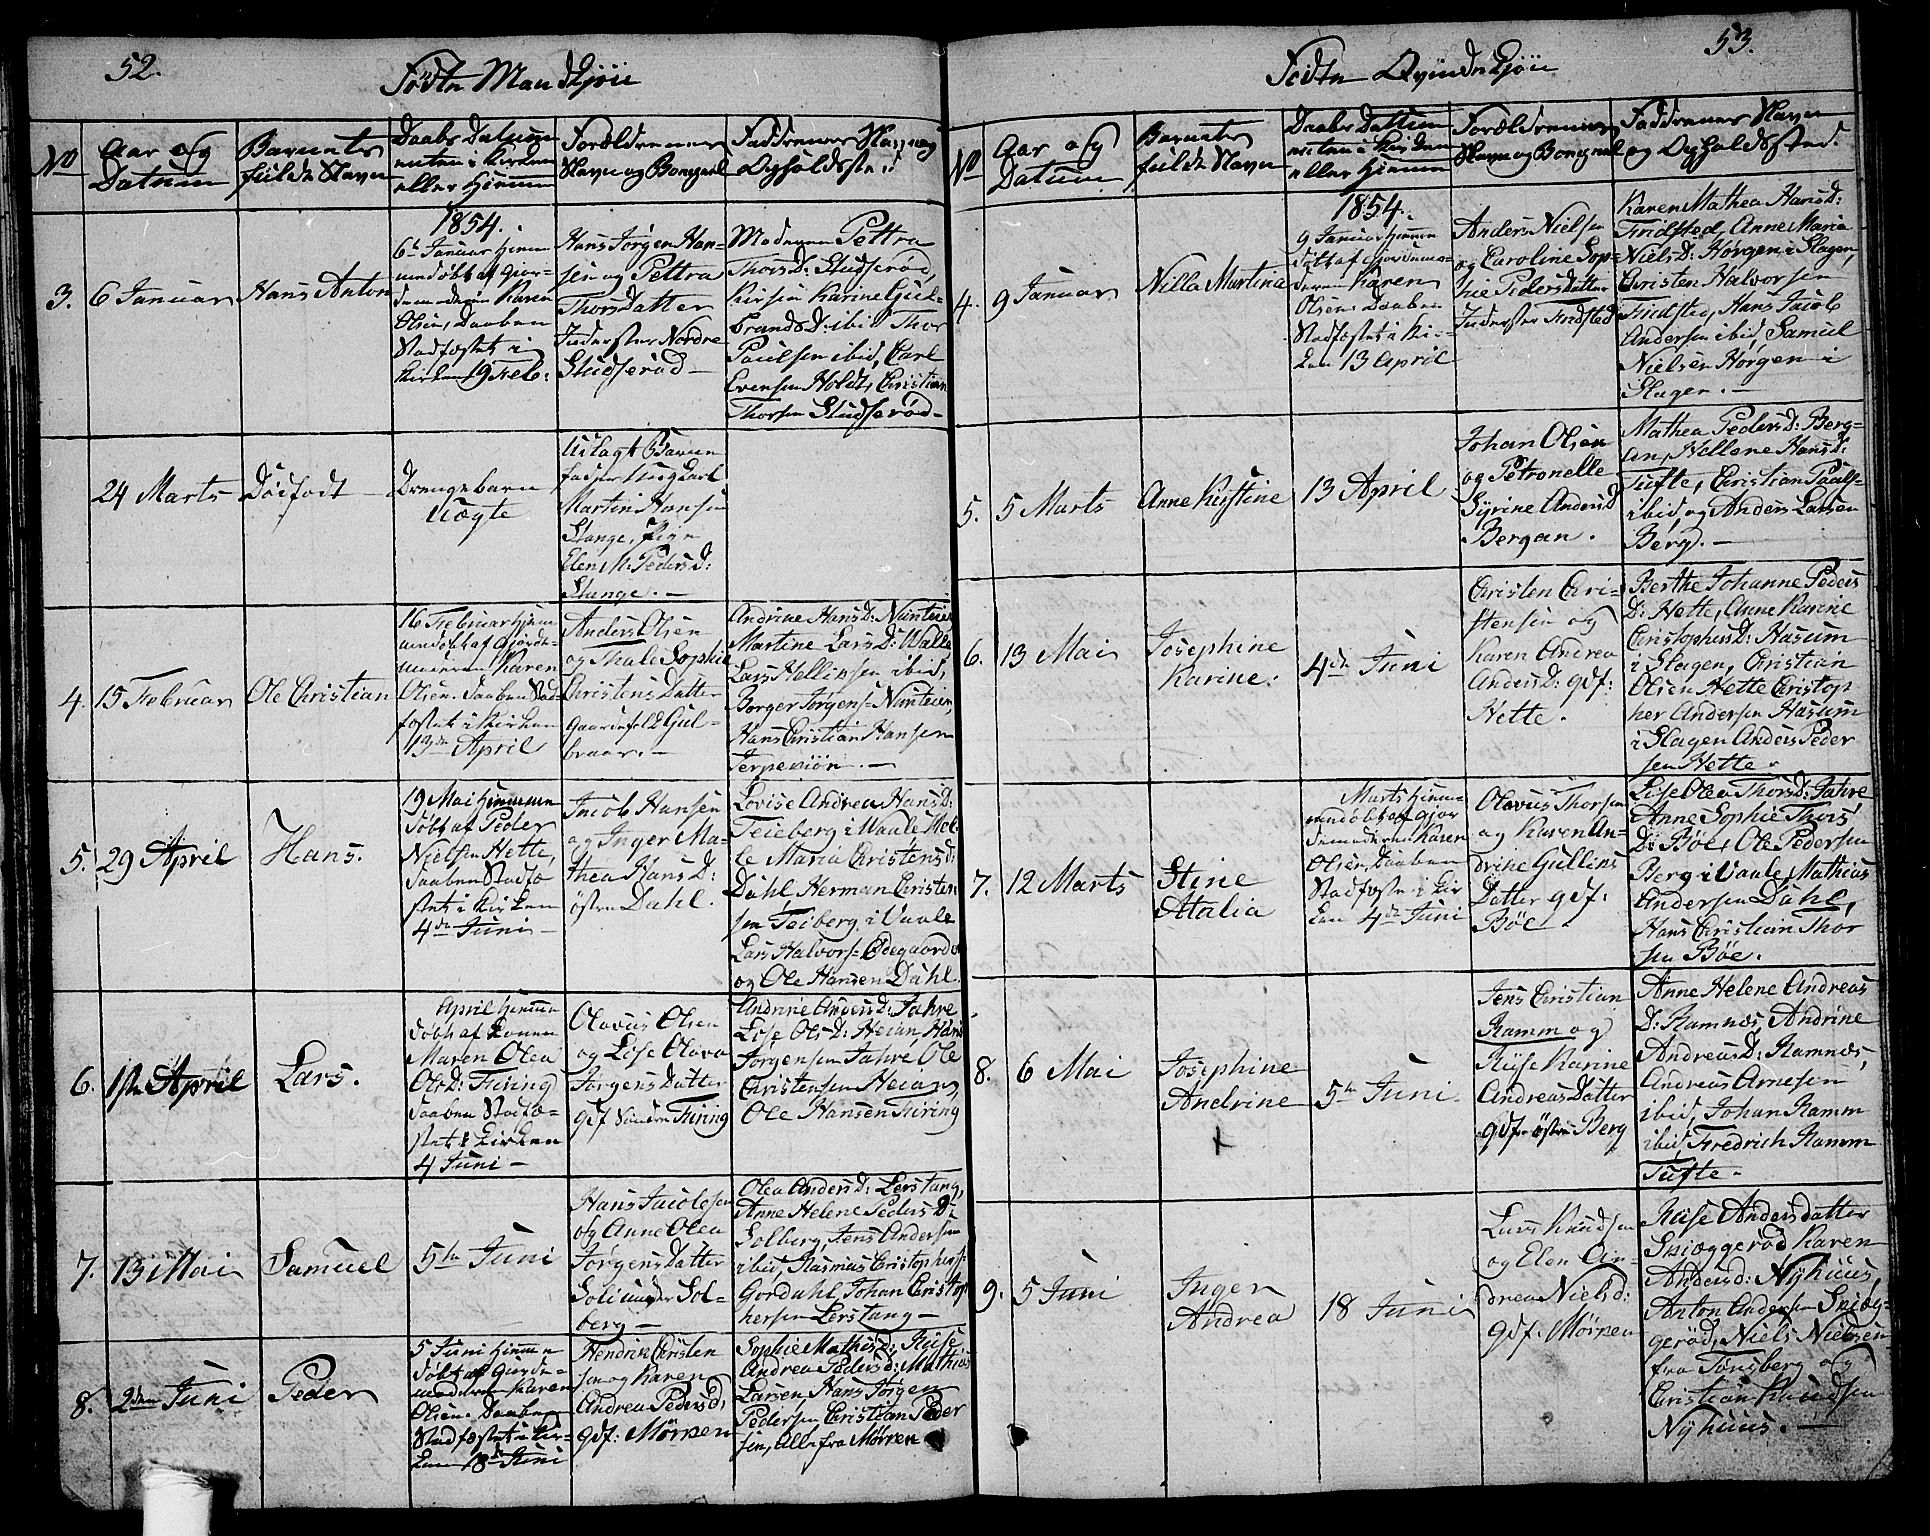 52.
Födte Mandkjøn
No
Aar og
Datum
Barnets
fulde Navn
Daabs Datum
enten i Kirken
eller Hjemme
Forældrenes
Navn og Borgerl
Faddrenes Navn og
Opholdssted
3.
6 Januar
Hans Anton
1854.
6te Januar hjem
mendøbt af Gjor-
demoderen Karen
Olsen, Daaben
Stadfæstet i
Kirken 19 Feb:
Hans Jørgen Han-
sen og Pettra
Thorsdatter
Inderster Nordre
Studserød
Madmen Pettra
ThorsD: Studserød,
Kirsten Karine Gul-
brandsD: ibid, Thor
Paulsen ibid, Carl
Evensen Holdt, Christian
Thorsen Studserød
24 Marts
Dödfødt
Drengebarn
Uægte
Udlagt Barne
fader Ungkarl
Martin Hansen
Stange, Pige
Elen M. PedersD:
Stange.
4.
15 Februar
Ole Christian
16 Februar hjem
mendøbt af Gjorde-
moderen Karen
Olsen. Daaben Stad-
fæstet i Kirken
13de April
Anders Olsen
og Thale Sophie
Christens Datter
Gaardefolk Gul-
braar.
Andrine HansD: Nuntuen
Martine LarsD: Walle
Lars Hellissen ibid,
Borger Jørgens: Nuntuen,
Hans Christian Hansen
Jerpekiön.
5.
29 April
Hans.
19 Mai Hjemmen
døbt af Peder
Nielsen Hette,
Daaben Stadfæ
stet i Kirken
4de Juni
Jacob Hansen
og Inger Ma-
thea HansD:
østre Dahl.
Lovise Andrea HansD:
Teieberg i Vaale Mol-
le Maria ChristensD:
Dahl, Herman Christen
sen Teiberg i Vaale
Lars Halvors: Ødegaarden
og Ole Hansen Dahl.
6.
1ste April
Lars.
April hjemme
døbt af Konen
Maren Olea
OlsD: Firing
Daaben Stadfæ-
stet i Kirken
4 Juni
Olavus Olsen
og Lise Olava
Jørgens Datter
gdf Søndre Firing
Andrine AndersD: Jahre
Lise OlsD: Heian, Hans
Jørgensen Jahre, Ole
Christensen Heian,
Ole Hansen Firing
7.
13 Mai
Samuel
5te Juni
Hans Jacobsen
og Anne Olea
Jørgens Datter
Soli under Sol-
berg
Olea AndersD: Lerstang,
Anne Helene PedersD:
Solberg, Jens Andersen
ibid, Rasmus Christophers:
Gordahl, Johan Christop
hersen Lerstang
8.
2den Juni
Peder
5 Juni hjemme
døbt af Gjorde-
moderen Karen
Olsen. Daaben
Stadfæstet i Kir-
ken 18de Juni
Hendrik Christen
sen og Karen
Andrea PedersD,
gdf: Mørken
Sophie MathisD: Ruse
Andrea PedersD: Mathias
Larsen, Hans Jørgen
Pedersen Christian Peder
sen, Alle fra Mørken
53.
Födte Qvindekjön
No
Aar og
Datum
Barnets
fulde Navn
Daabs Dattum
enten i Kirken
eller Hjemme
Forældrenes
Navn og Borgerl
Faddrenes Navn
og Opholdssted.
4.
9 Januar
Nilla Martina
1854.
9 Januar hjemme
døbt af Gjordemo-
deren Karen
Olsen. Daaben
Stadfæstet i Kir-
ken 13 April
Anders Nielsen
og Caroline Sop-
hie Pedersdatter
Inderster Fredsted
Karen Mathea HansD:
Fredsted, Anne Maria
NielsD: Horgen i Slagen,
Christen Halvorsen
Fredsted, Hans Jacob
Andersen ibid, Samuel
Nielsen Horgen i
Slagen.
5.
5 Marts
Anne Kirstine
13 April
Johan Olsen
og Petronelle
Syrine AndersD
Bergan.
Mathea PedersD: Berg-
an, Hellene HansD:
Tufte, Christian Pauls-
ibid og Anders Larsen
Berg.
6.
13 Mai
Josephine
Karine.
4de Juni
Christen Chri-
stensen og
Karen Andrea
AndersD: gdf:
Hette.
Berthe Johanne Peders
D: Hette, Anne Karine
ChristophersD: Hasum
i Slagen, Christian
Olsen Hette Christop
her Andersen Hasum
i Slagen Anders Peder
sen Hette.
7.
12 Marts
Stine
Atalia
Marts hjem-
mendøbt af Gjor
demoderen Karen
Olsen, Daaben
Stadfæstet i Kir
ken 4de Juni
Olavus Thorsen
og Karen An-
drine Gullius
Datter gdf:
Böe
Lise Olea ThorsD: Jahre
Anne Sophie Thors
D: Böe, Ole Pedersen
Berg i Vaale, Mathias
Andersen Dahl,
Hans Christian Thor
sen Böe.
8.
6 Mai
Josephine
Andrine
+
5te Juni.
Jens Christian
Ramm og
Risse Karine
Andreas Datter
gdf. østre Berg
Anne Helene Andreas
D: Ramnæs, Andrine
AndreasD: Ramnæs,
Andreas Arnesen
ibid, Johan Ramm
ibid, Fredrich Ramm
Tufte.
9.
5 Juni
Inger
Andrea
18 Juni
Lars Knudsen
og Elen An-
drea NielsD:
gdf: Mørken
Risse Andersdatter
Skjæggerød Karen
AndersD: Nyhuus,
Anton Andersen Skjæg-
gerød, Niels Nielsen
fra Tønsberg og
Christian Knudsen
Nyhuus.